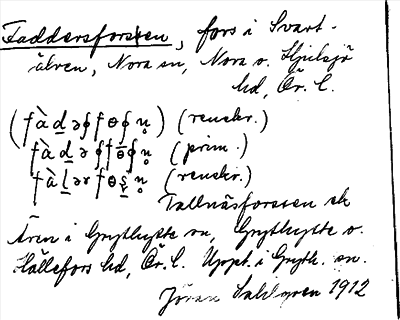 Faddersforsen, fors i Svart-
älven, Nora sn, Nora o. Hjulsjö
hd, Ör. l.
(fàd̲əʂfɵʂn̥) (renskr.)
fàd̲əʂfɵ̄ʂn̥ (prim.)
fàl̲ərfɵş̲n̥ (renskr.)
Tallnäsforsen el.
Åren i Grythytte sn, Grythytte o.
Hällefors hd, Ör. l. Uppt. i Gryth. sn.
Jöran Sahlgren 1912